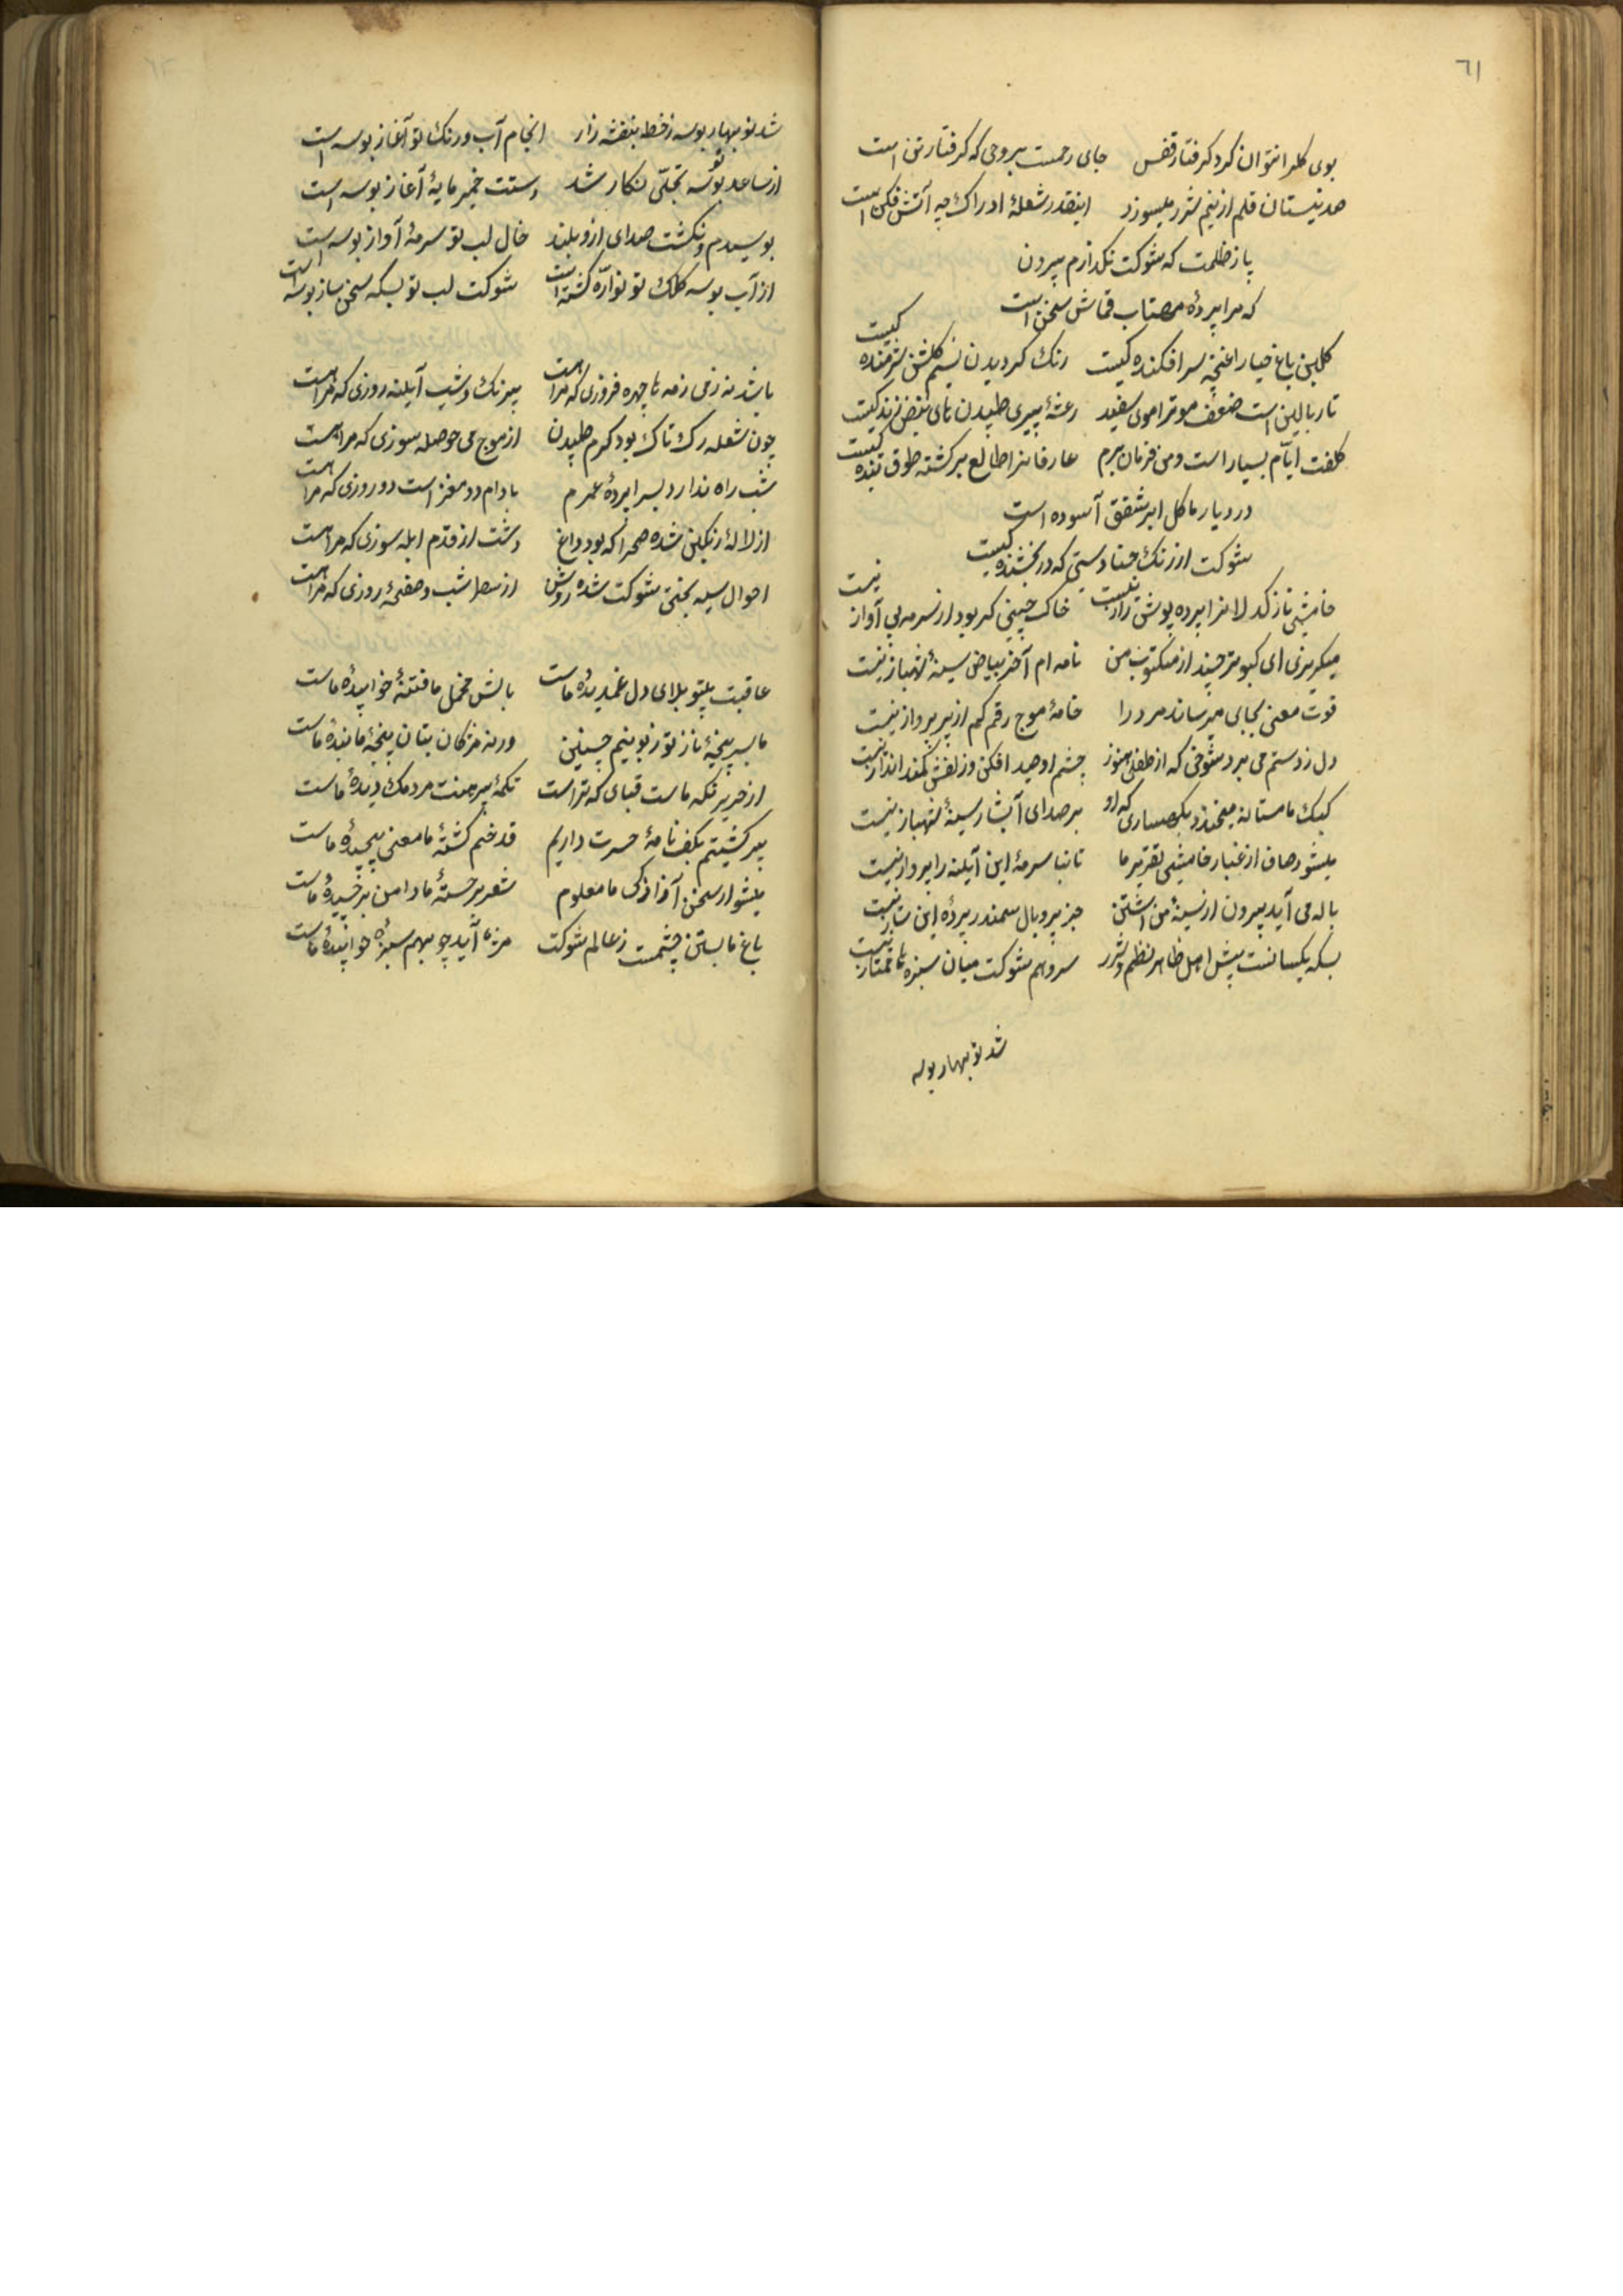 ٦١
بوی کلرا نتوان کرد کرفتار قفس جای رحمست بروحی که کرفتار تن است
صد نیستان قلم از نیم شرر میسوزد اینقدر شعلهٔ ادراک چه آتش فکن است
پا ز ظلمت که شوکت نکذارم بیرون
که مرا پردهٔ مهتاب قماش سخن است
کلبن باغ حیا را غنچه سر افکنده کیست رنک کردیدن نسیم کلشن شرمنده کیست
تار بالین است ضعف مو ترا موی سفید رعشهٔ پیری طپیدن های نبض زنده کیست
کلفت ایام بسیار است و من فرمان برم عارفانرا طالع برکشته طوق بنده کیست
در دیار ما کل ابر شفق آسوده است
شوکت از رنک حنا دستی که در بخشنده کیست
خامشی نازکدلانرا پرده پوش راز نیست خاک چینی کر بود از سرمه بی آواز نیست
میکریزی ای کبوتر چند از مکتوب من نامه ام آخر بیاض سینهٔ شهباز نیست
قوت معنی بجایی میرساند مرد را خامهٔ موج رقم کم از پر پرواز نیست
دل ز دستم می برد شوخی که از طفلی هنوز چشم او صید افکن و زلفش کمند انداز نیست
کبک ما مستانه میخندد بکهساری که او بر صدای آبشار سینهٔ شهباز نیست
میشود صاف از غبار خامشی تقریر ما تا نباشد سرمهٔ این آینه را پرداز نیست
ناله می آید بیرون از سینهٔ من آتشین جز پر و بال سمندر پردهٔ این ساز نیست
بسکه یکسانست پیش اهل ظاهر نظم و نثر سرو هم شوکت میان سبزه ها ممتاز نیست
شد نو بهار بوسه
شد نو بهار بوسه ز خط بنفشه زار انجام آب و رنک تو آغاز بوسه است
از ساعد تو بوسه تجلی نکار شد دستت خمیر مایهٔ آغاز بوسه است
بوسیدم و نکشت صدای ازو بلند خال لب تو سرمهٔ آواز بوسه است
از آب بوسه کلک تو فواره کشته است شوکت لب تو بسکه سخن ساز بوسه است
باشد نه ز می زمه ما چهره فروزی که مراهست بیرنک و شب آینه روزی که مراهست
چون شعله رک تاک بود کرم طپیدن از موج می حوصله سوزی که مراهست
شب راه ندارد بسرا پردهٔ عمرم بادام دو مغز است دو روزی که مراهست
از لالهٔ رنکین شده صحرا که بود داغ دشت از قدم ابله سوزی که مراهست
احوال سیه بختی شوکت شده روشن از سطر شب و صفحهٔ روزی که مراهست
عاقبت پهلو بلای دل غمدیدهٔ ماست بالش مخمل ما فتنهٔ خوابیدهٔ ماست
ما بسر پنجهٔ ناز تو زبونیم چنین ورنه مژکان بتان پنجهٔ تابیدهٔ ماست
از حریر نکه ماست قبای که تراست تکمهٔ پیرهنت مردمک دیدهٔ ماست
پیر کشتیم بکف نامهٔ حسرت داریم قد خم کشتهٔ ما معنی پیچیدهٔ ماست
میشود از سخن آزادکی ما معلوم شعر برجستهٔ ما دامن برچیدهٔ ماست
باغ ما بستن چشمست ز عالم شوکت مژه آید چو بهم سبزهٔ خوابیدهٔ ماست